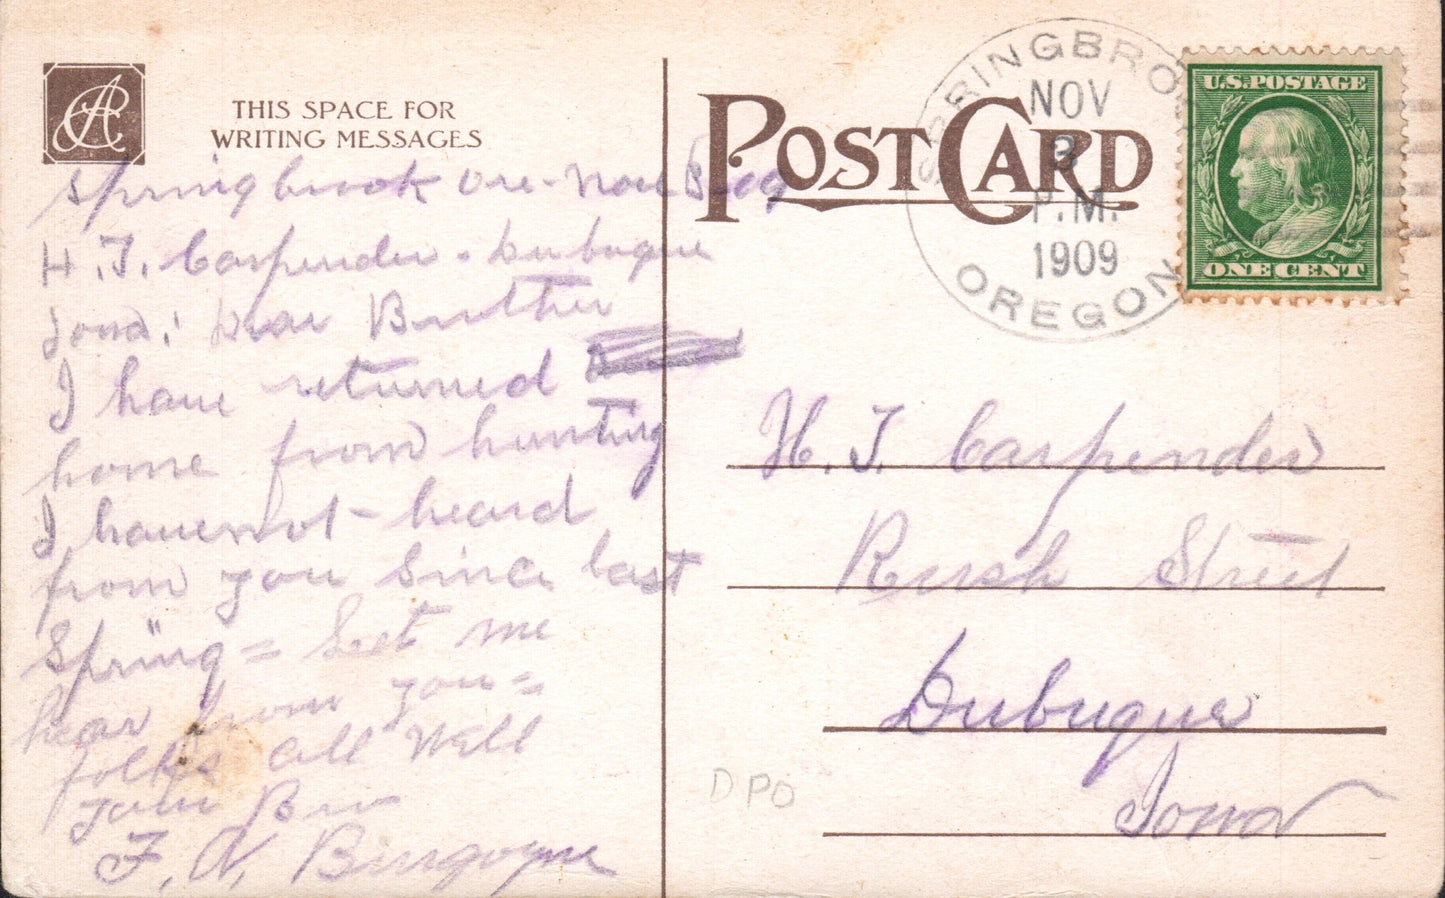 THIS SPACE FOR
WRITING MESSAGES
Springbrook Ore. Nov 3-09
H. T. Carpender. Dubuque
Iowa. Dear Brother
I have returned
home from hunting
I have not heard
from you since last
Spring = Let me
hear from you =
folks all well
Your Bro
F. W. Burgoyne
POST CARD
SPRINGBRO
NOV
3
P.M.
1909
OREGON
U.S. POSTAGE
ONE CENT
H. T. Carpender
Rush Street
Dubuque
Iowa
DPO